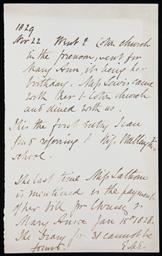 1829
Nov 22 West to Eden church
in the forenoon, went for
Mary Ann it being her
birthday. Miss Lewis came
with her to Eden church
and dined with us.
This the first entry I can
find refering to Miss Wallington
school.
The last time Miss Lathom
is mentioned is the payment
of her bill for Chrissy &
Mary Anne Jan 10th 1828.
The Diary for 31 cannot be
found.